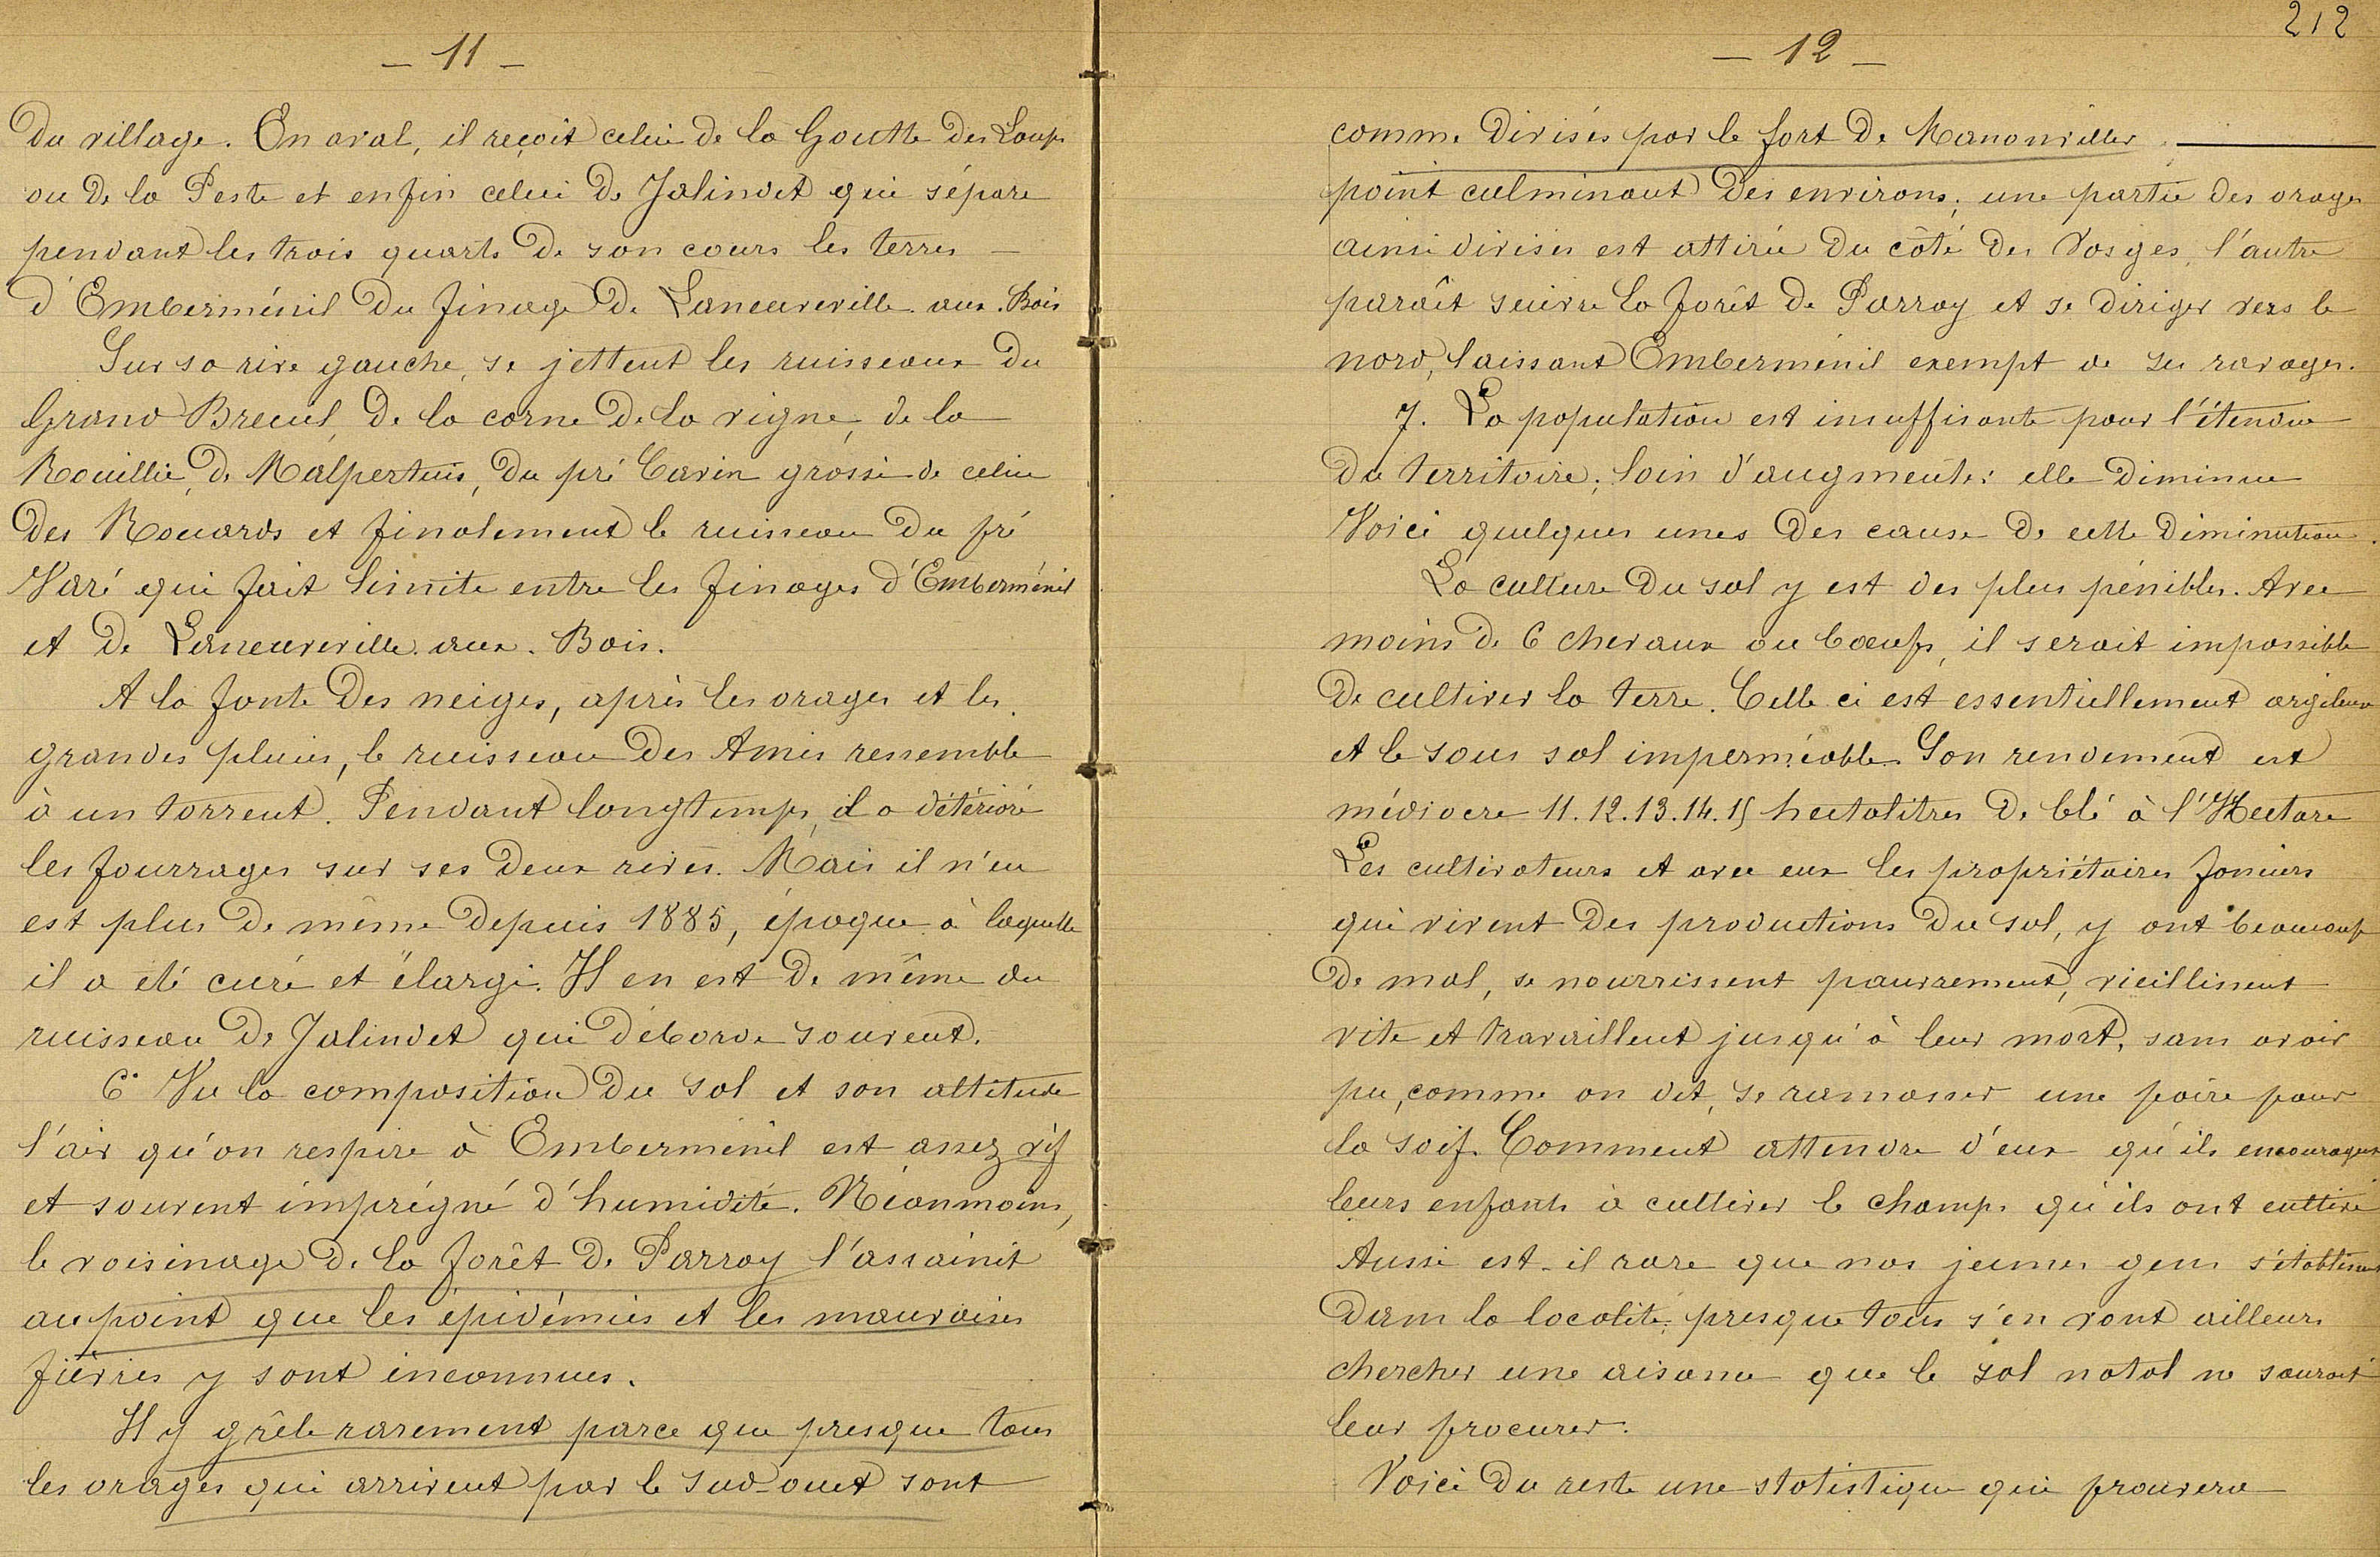 — 11 —
du village. En aval, il reçoit celui de la Goutte des Loups
ou de la Peste et enfin celui de Jalindet qui sépare
pendant les trois quarts de son cours les terres —
d'Emberménil du finage de Laneuveville-aux-Bois
Sur sa rive gauche, se jettent les ruisseaux du
Grand Breuil, de la corne de la vigne, de la
Rouillie, de Malpertuis, du pré Cavin grossi de celui
des Rouards et finalement le ruisseau du pré
Varé qui fait limite entre les finages d'Emberménil
et de Laneuveville-aux-Bois.
A la fonte des neiges, après les orages et les
grandes pluies, le ruisseau des Amis ressemble
à un torrent. Pendant longtemps, il a détérioré
les fourrages sur ses deux rives. Mais il n'en
est plus de même depuis 1885, époque à laquelle
il a été curé et élargi. Il en est de même du
ruisseau de Jalindet qui déborde souvent.
6° Vu la composition du sol et son altitude
l'air qu'on respire à Emberménil est assez vif
et souvent imprégné d'humidité. Néanmoins,
le voisinage de la forêt de Parroy l'assainit
au point que les épidémies et les mauvaises
fièvres y sont inconnues.
Il y grêle rarement parce que presque tous
les orages qui arrivent par le sud-ouest sont
212
— 12 —
comme divisés par le fort de Manonviller
point culminant des environs; une partie des orages
ainsi divisés est attirée du côté des Vosges, l'autre
paraît suivre la forêt de Parroy et se diriger vers le
nord, laissant Emberménil exempt de ses ravages.
7. La population est insuffisante pour l'étendue
du territoire; loin d'augmenter elle diminue
Voici quelques unes des cause de cette diminution.
La culture du sol y est des plus pénibles. Avec
moins de 6 chevaux ou bœufs, il serait impossible
de cultiver la terre. Celle ci est essentiellement argileuse
et le sous sol imperméable. Son rendement est
médiocre 11.12.13.14.15 hectolitres de blé à l'Hectare
Les cultivateurs et avec eux les propriétaires fonciers
qui vivent des productions du sol, y ont beaucoup
de mal, se nourrissent pauvrement, vieillissent
vite et travaillent jusqu'à leur mort, sans avoir
pu, comme on dit, se ramasser une poire pour
la soif. Comment attendre d'eux qu'ils encouragent
leurs enfants à cultiver le champs qu'ils ont cultivé
Aussi est-il rare que nos jeunes gens s'établissent
dans la localité; presque tous s'en vont ailleurs
chercher une aisance que le sol natal ne saurait
leur procurer.
Voici du reste une statistique qui prouvera